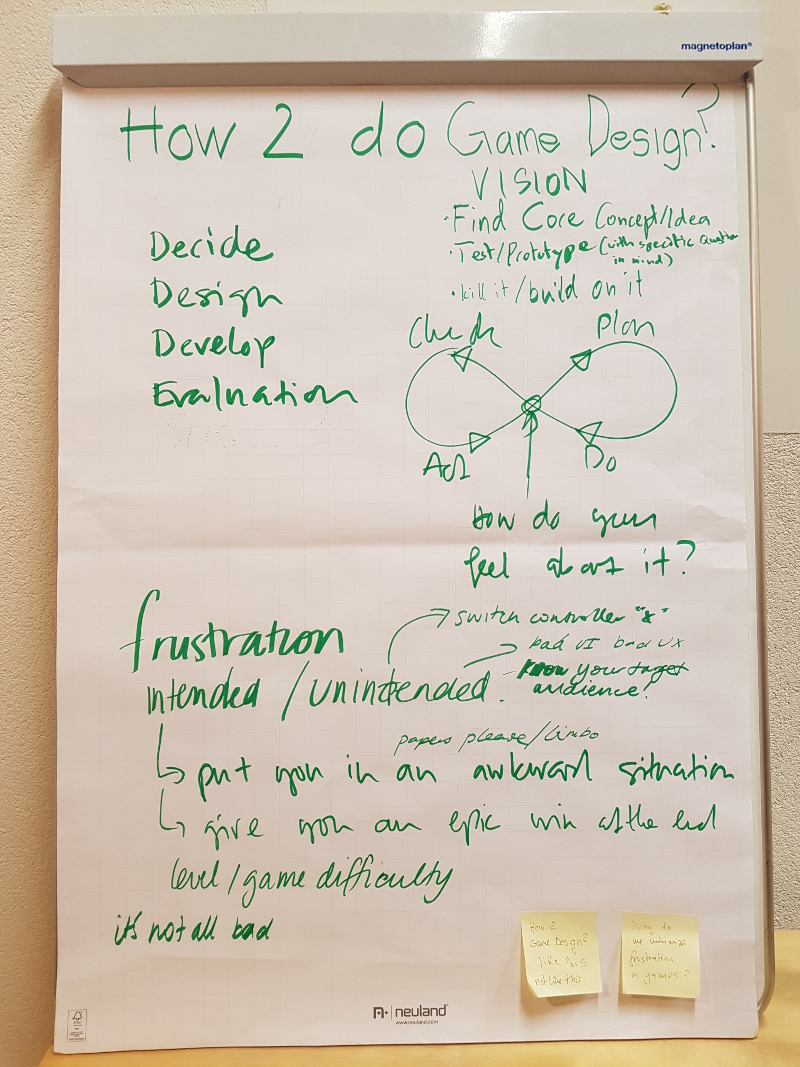 magnetoplan®
How 2 do Game Design?
VISION
· Find Core Concept/Idea
· Test/Prototype (with specific Question
in mind)
· kill it / build on it
Decide
Design
Develop
Evaluation
Check
Plan
Act
Do
How do you
feel about it?
frustration
intended / unintended.
switch controller "x"
bad UI bad UX
know your target
audience!
papers please / Limbo
put you in an awkward situation
give you an epic win at the end
level / game difficulty
it's not all bad
How 2
Game Design?
like this
not like this
Why do
we
frustration
in games?
neuland®
www.neuland.com
FSC